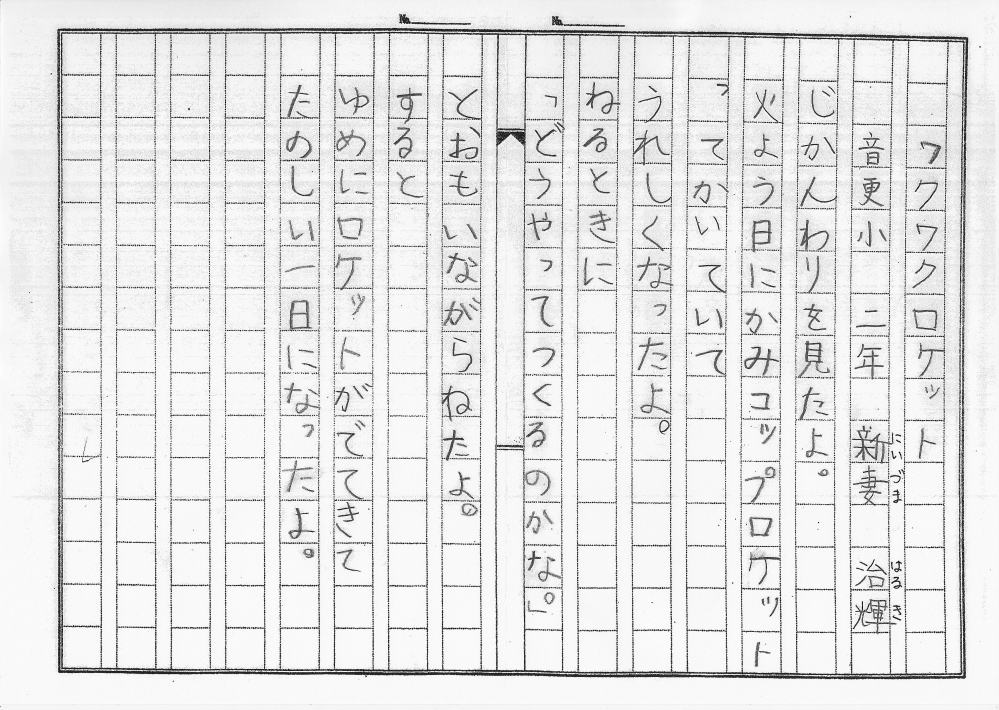 № №
ワクワクロケット
音更小 二年 新妻 治輝
にいづま はるき
じかんわりを見たよ。
火よう日にかみコップロケット
ってかいていて
うれしくなったよ。
ねるときに
「どうやってつくるのかな。」
とおもいながらねたよ。
すると
ゆめにロケットがでてきて
たのしい一日になったよ。